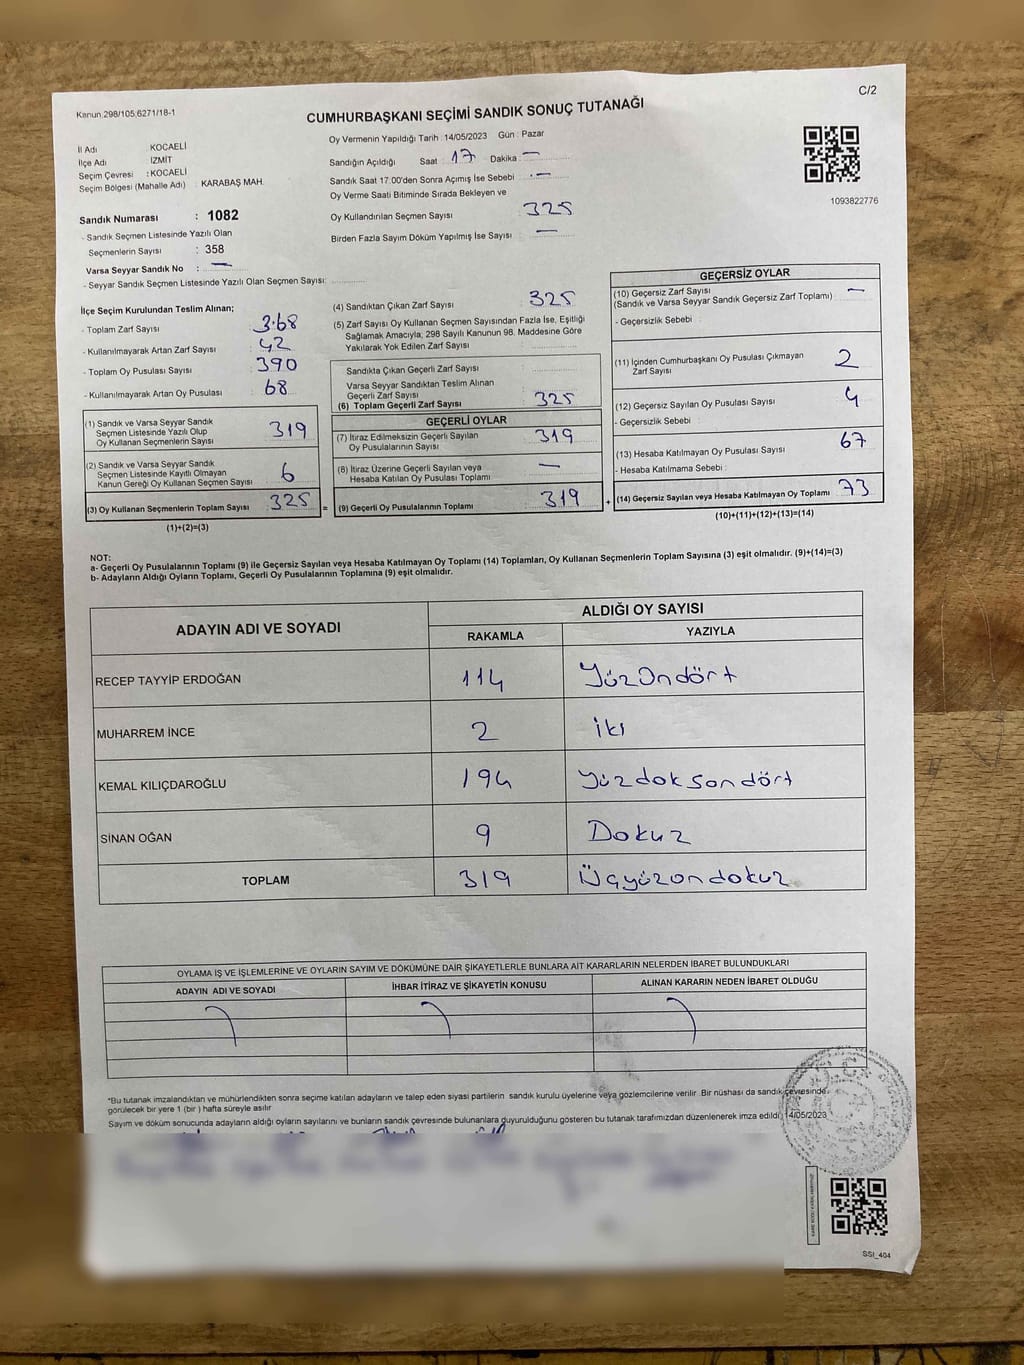 Kanun.298/105,6271/18-1
C/2
CUMHURBAŞKANI SEÇİMİ SANDIK SONUÇ TUTANAĞI
İl Adı KOCAELİ
İlçe Adı İZMİT
Seçim Çevresi : KOCAELİ
Seçim Bölgesi (Mahalle Adı) : KARABAŞ MAH.
Sandık Numarası : 1082
- Sandık Seçmen Listesinde Yazılı Olan
Seçmenlerin Sayısı : 358
Varsa Seyyar Sandık No : —
- Seyyar Sandık Seçmen Listesinde Yazılı Olan Seçmen Sayısı:
Oy Vermenin Yapıldığı Tarih : 14/05/2023 Gün : Pazar
Sandığın Açıldığı Saat 17 Dakika —
Sandık Saat 17.00'den Sonra Açımış İse Sebebi : —
Oy Verme Saati Bitiminde Sırada Bekleyen ve
Oy Kullandırılan Seçmen Sayısı 325
Birden Fazla Sayım Döküm Yapılmış İse Sayısı —
1093822776
İlçe Seçim Kurulundan Teslim Alınan;
- Toplam Zarf Sayısı : 368
- Kullanılmayarak Artan Zarf Sayısı : 42
- Toplam Oy Pusulası Sayısı : 390
- Kullanılmayarak Artan Oy Pusulası : 68
(1) Sandık ve Varsa Seyyar Sandık
Seçmen Listesinde Yazılı Olup
Oy Kullanan Seçmenlerin Sayısı 319
(2) Sandık ve Varsa Seyyar Sandık
Seçmen Listesinde Kayıtlı Olmayan
Kanun Gereği Oy Kullanan Seçmen Sayısı 6
(3) Oy Kullanan Seçmenlerin Toplam Sayısı 325 =
(1)+(2)=(3)
(4) Sandıktan Çıkan Zarf Sayısı 325
(5) Zarf Sayısı Oy Kullanan Seçmen Sayısından Fazla İse, Eşitliği
Sağlamak Amacıyla, 298 Sayılı Kanunun 98. Maddesine Göre
Yakılarak Yok Edilen Zarf Sayısı
Sandıkta Çıkan Geçerli Zarf Sayısı
Varsa Seyyar Sandıktan Teslim Alınan
Geçerli Zarf Sayısı
(6) Toplam Geçerli Zarf Sayısı 325
GEÇERLİ OYLAR
(7) İtiraz Edilmeksizin Geçerli Sayılan
Oy Pusulalarının Sayısı 319
(8) İtiraz Üzerine Geçerli Sayılan veya
Hesaba Katılan Oy Pusulası Toplamı —
(9) Geçerli Oy Pusulalarının Toplamı 319 +
GEÇERSİZ OYLAR
(10) Geçersiz Zarf Sayısı —
(Sandık ve Varsa Seyyar Sandık Geçersiz Zarf Toplamı)
- Geçersizlik Sebebi :
(11) İçinden Cumhurbaşkanı Oy Pusulası Çıkmayan
Zarf Sayısı 2
(12) Geçersiz Sayılan Oy Pusulası Sayısı 4
- Geçersizlik Sebebi :
(13) Hesaba Katılmayan Oy Pusulası Sayısı 67
- Hesaba Katılmama Sebebi :
(14) Geçersiz Sayılan veya Hesaba Katılmayan Oy Toplamı 73
(10)+(11)+(12)+(13)=(14)
NOT:
a- Geçerli Oy Pusulalarının Toplamı (9) ile Geçersiz Sayılan veya Hesaba Katılmayan Oy Toplamı (14) Toplamları, Oy Kullanan Seçmenlerin Toplam Sayısına (3) eşit olmalıdır. (9)+(14)=(3)
b- Adayların Aldığı Oyların Toplamı, Geçerli Oy Pusulalarının Toplamına (9) eşit olmalıdır.
ADAYIN ADI VE SOYADI
ALDIĞI OY SAYISI
RAKAMLA YAZIYLA
RECEP TAYYİP ERDOĞAN 114 YüzOndört
MUHARREM İNCE 2 iki
KEMAL KILIÇDAROĞLU 194 Yüzdoksandört
SİNAN OĞAN 9 Dokuz
TOPLAM 319 Üçyüzondokuz
OYLAMA İŞ VE İŞLEMLERİNE VE OYLARIN SAYIM VE DÖKÜMÜNE DAİR ŞİKAYETLERLE BUNLARA AİT KARARLARIN NELERDEN İBARET BULUNDUKLARI
ADAYIN ADI VE SOYADI İHBAR İTİRAZ VE ŞİKAYETİN KONUSU ALINAN KARARIN NEDEN İBARET OLDUĞU
*Bu tutanak imzalandıktan ve mühürlendikten sonra seçime katılan adayların ve talep eden siyasi partilerin sandık kurulu üyelerine veya gözlemcilerine verilir. Bir nüshası da sandık çevresinde
görülecek bir yere 1 (bir ) hafta süreyle asılır
Sayım ve döküm sonucunda adayların aldığı oyların sayılarını ve bunların sandık çevresinde bulunanlara duyurulduğunu gösteren bu tutanak tarafımızdan düzenlenerek imza edildi. 14/05/2023
SSI_404